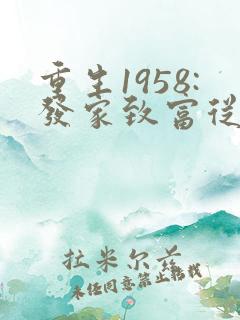 重生1958:
發家致富從
拉米尔兹
未経同意禁止轉載